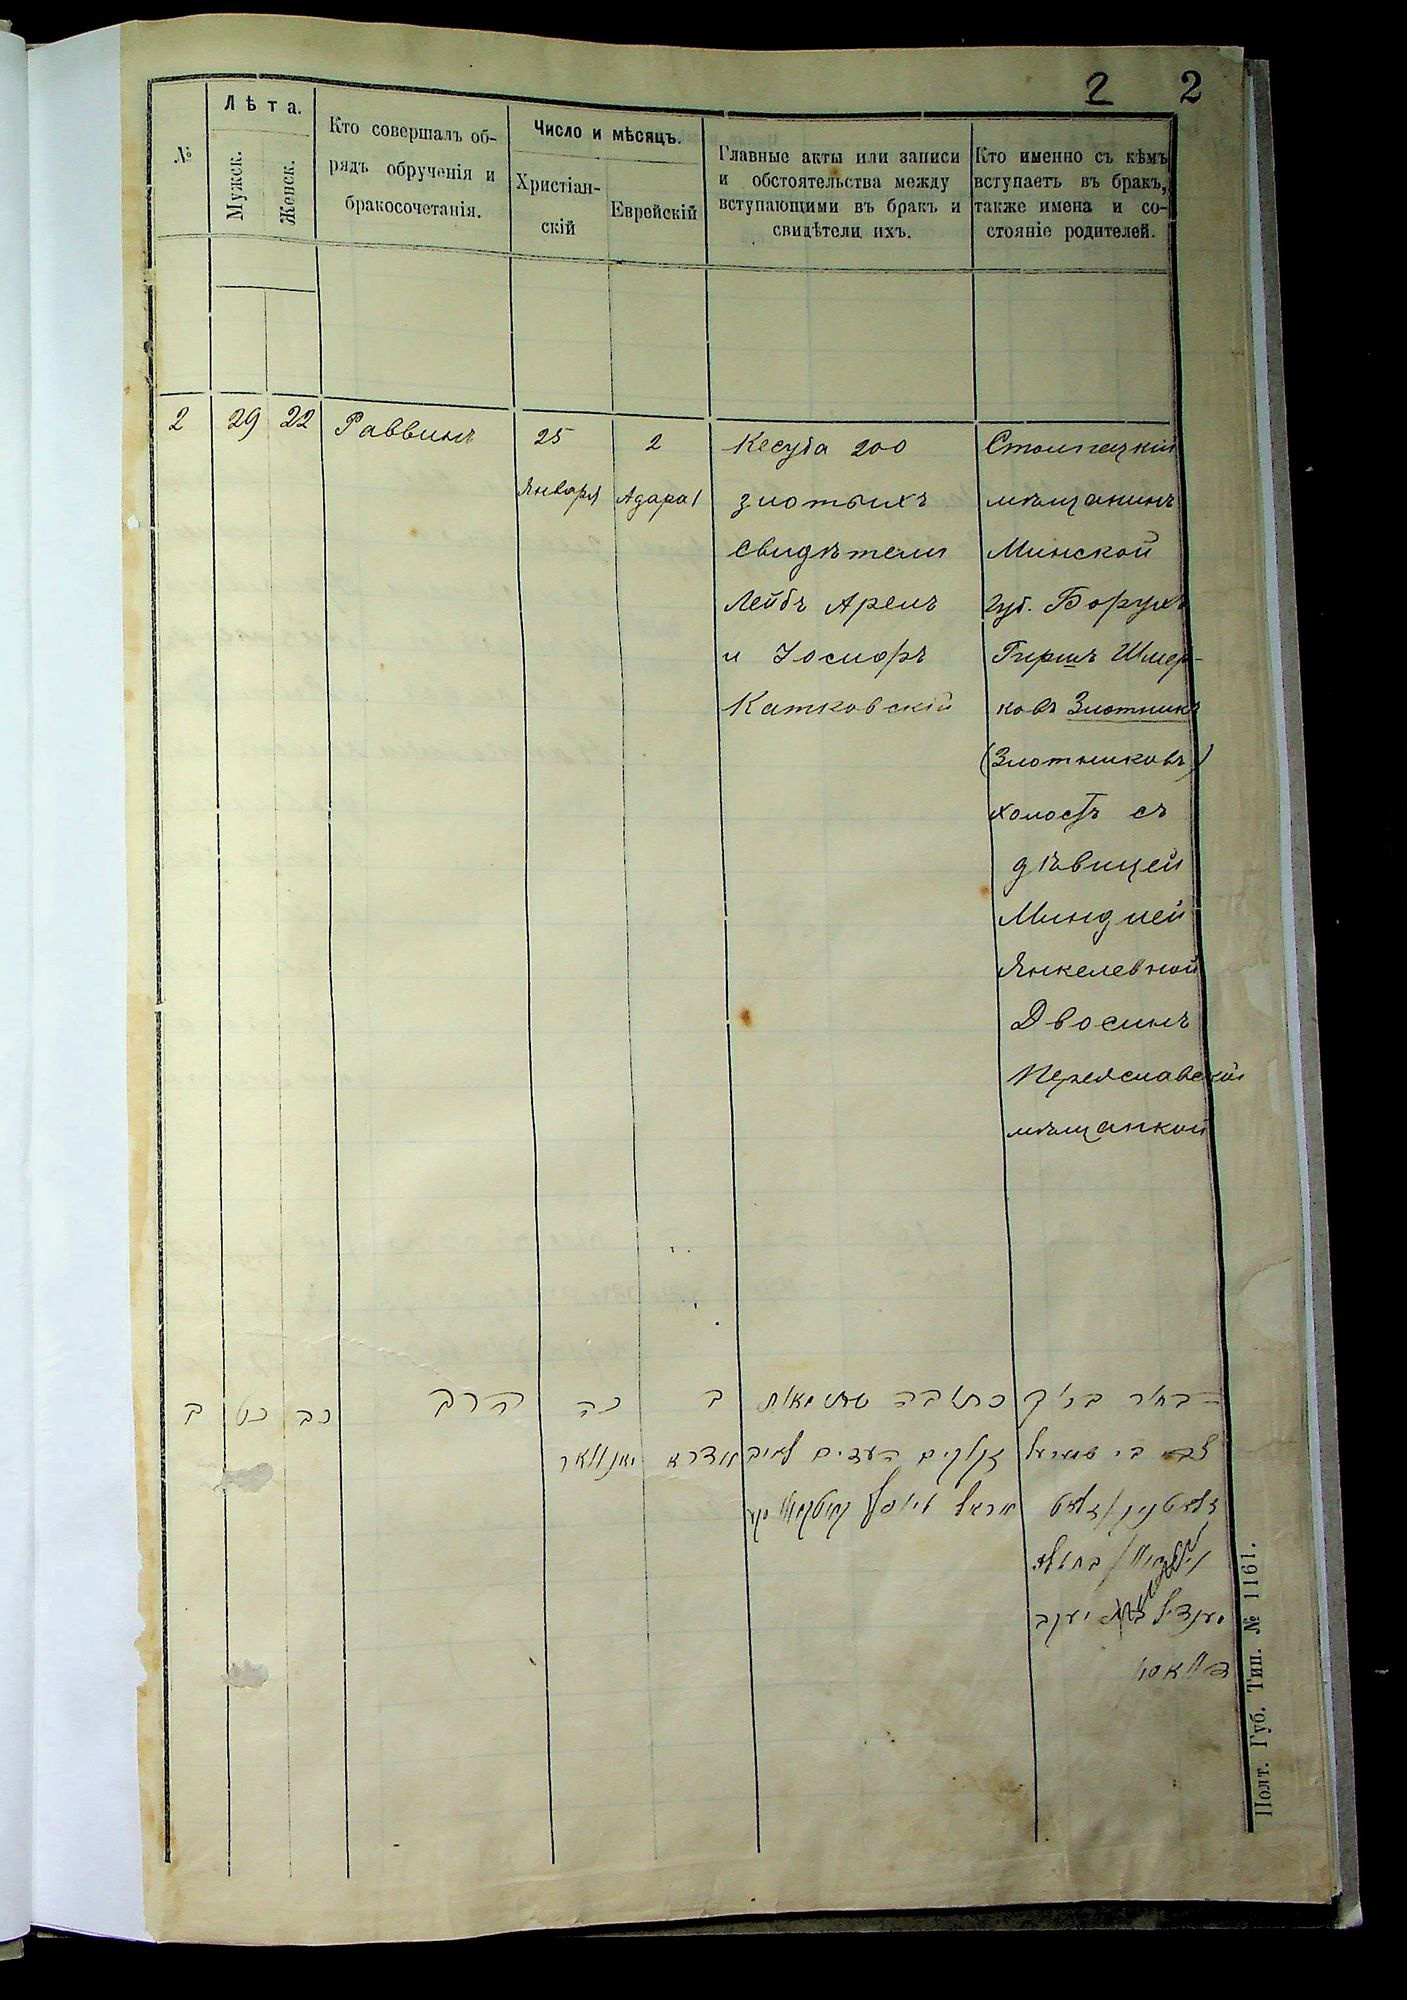 2 2
№
Лѣта.
Мужск.
Женск.
Кто совершалъ об-
рядъ обрученія и
бракосочетанія.
Число и мѣсяцъ.
Христіан-
скій
Еврейскій
Главные акты или записи
и обстоятельства между
вступающими въ бракъ и
свидѣтели ихъ.
Кто именно съ кѣмъ
вступаетъ въ бракъ,
также имена и со-
стояніе родителей.
2
29
22
Раввинъ
25
Января
2
Адара I
Кесуба 200
злотыхъ
свидѣтели
Лейбъ Арелъ
и Іосифъ
Катковскій
Столпецкій
мѣщанинъ
Минской
губ. Борухъ
Гиршъ Шмер-
ковъ Злотникъ
(Злотниковъ)
холостъ съ
дѣвицей
Миндлей
Янкелевной
Двосинъ
Переяславской
мѣщанкой
ב
כט
כב
הרב
כה
יאנוואר
ב
אדר א
כתובה
זקוקים העדים לייב
הבחור
יעקב
Полт. Губ. Тип. № 1161.